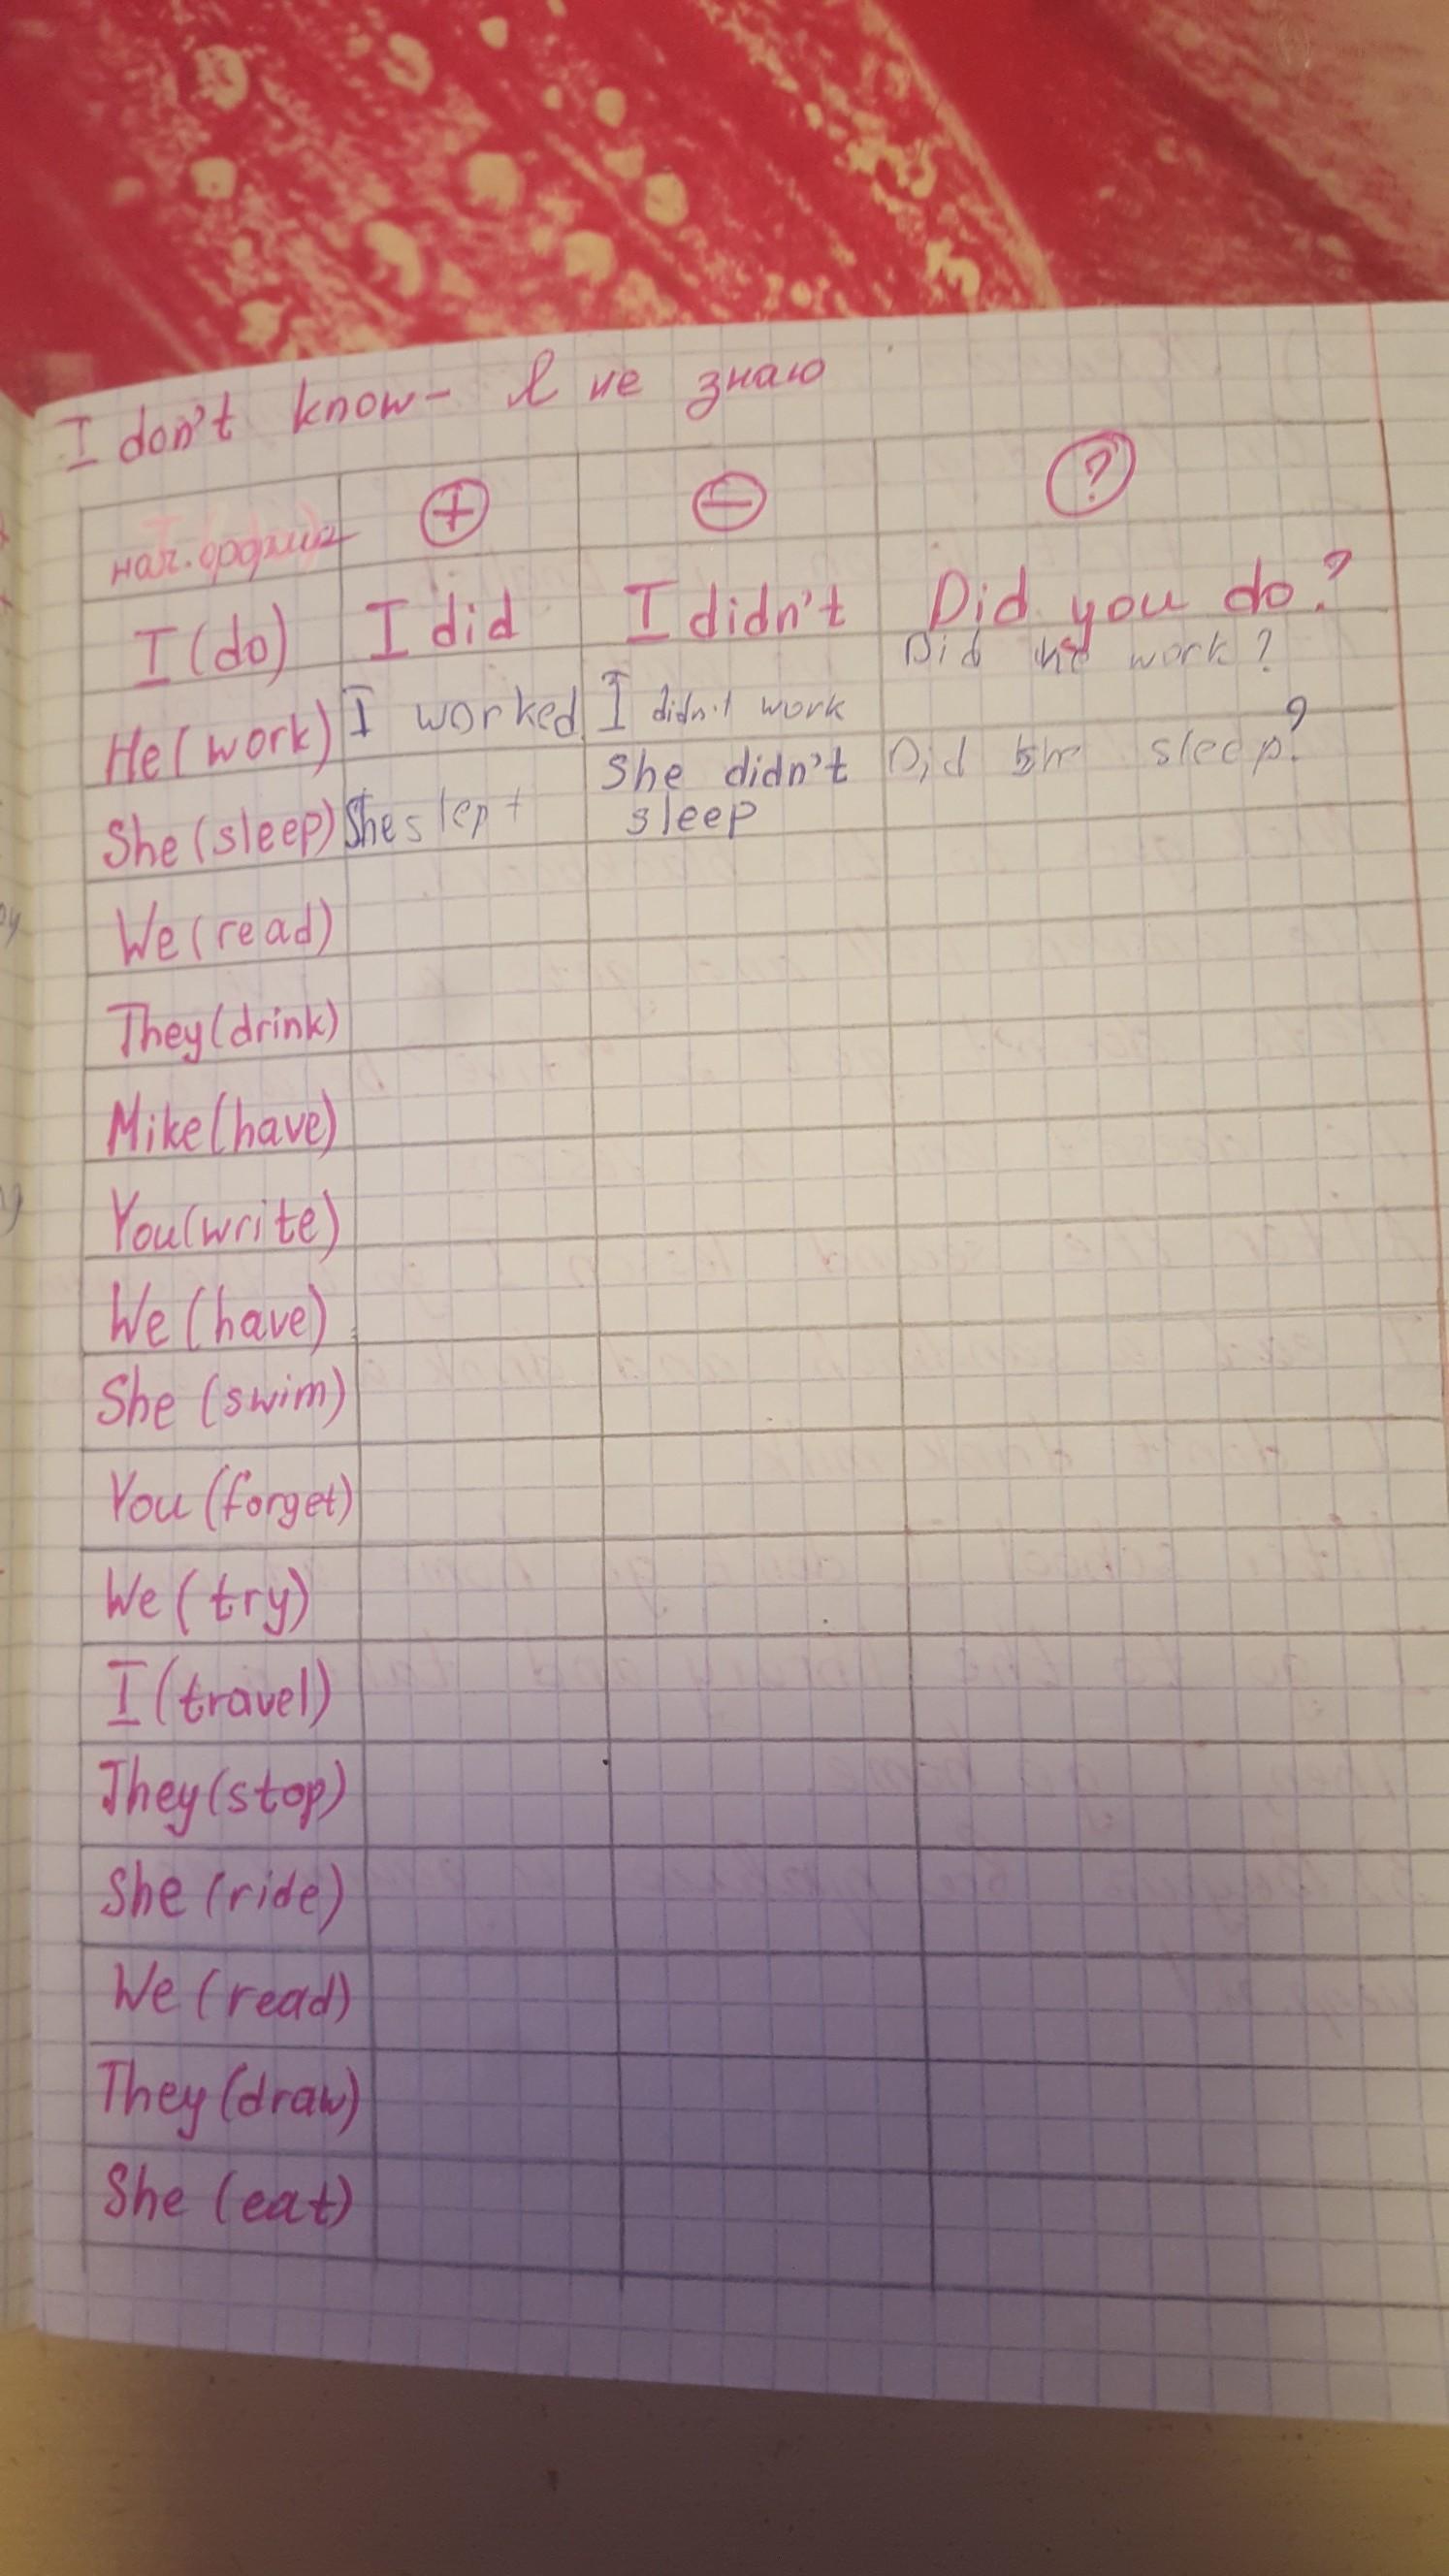 I don't know - Я не знаю
нач. форма + - ?
I (do) I did I didn't Did you do?
He (work) I worked I didn't work Did he work?
She (sleep) She slept She didn't sleep Did she sleep?
We (read)
They (drink)
Mike (have)
You (write)
We (have)
She (swim)
You (forget)
We (try)
I (travel)
They (stop)
She (ride)
We (read)
They (draw)
She (eat)